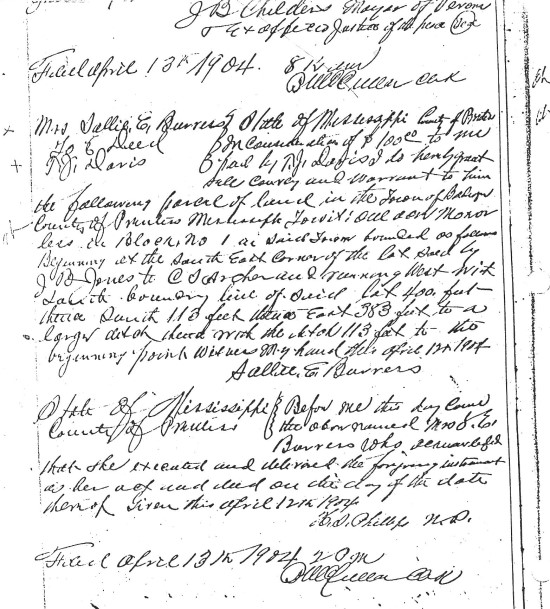 J B Childers Mayor of Verona
& Ex officio Justice of the peace Seal
Filed April 13th 1904. 8 PM
McQueen Clk
Mrs Sallie, E, Burress State of Mississippi County of Prentiss
To Deed In Consideration of $100.00 to me
T, J, Davis paid by T, J, Davis I do hereby grant
sell Convey and warrant to him
the following parcel of land in the Town of
County of Prentiss Mississippi Towit: one acre more or
less in Block, No 1 in Said Town bounded as follows
Beginning at the South East Corner of the lot Sold by
J, B, Jones to C S Archer and running West with
South boundary line of Said lot 400, feet
thence South 113 feet thence East 383 feet to a
large ditch thence with the ditch 113 feet to the
beginning point Witness My hand this April 12th 1904
Sallie, E, Burress
State of Mississippi Before me this day Came
County of Prentiss the above named Mrs S. E,
Burress who acknowledged
that She executed and delivered the foregoing instrument
as her act and deed on the day of the date
thereof Given this April 12th 1904
Phillips N. P.
Filed April 13th 1904 2 P M
McQueen Clk